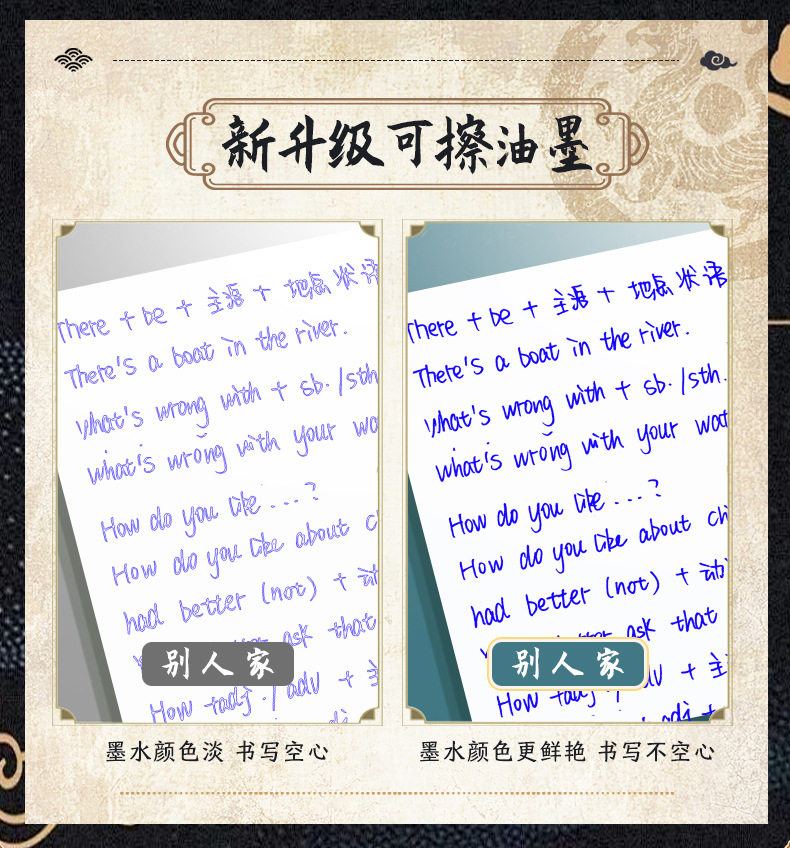 新升级可擦油墨
There + be + 主语 + 地点状语
There's a boat in the river.
what's wrong with + sb. / sth
what's wrong with your wa
How do you like ...?
How do you like about c
had better (not) + 动
ask that
How +adj. / adv + 主
adj
别人家
墨水颜色淡 书写空心
There + be + 主语 + 地点状语
There's a boat in the river.
what's wrong with + sb. / sth.
what's wrong with your wat
How do you like ...?
How do you like about ch
had better (not) + 动
ask that
How +adj. / adv + 主
adj +
别人家
墨水颜色更鲜艳 书写不空心